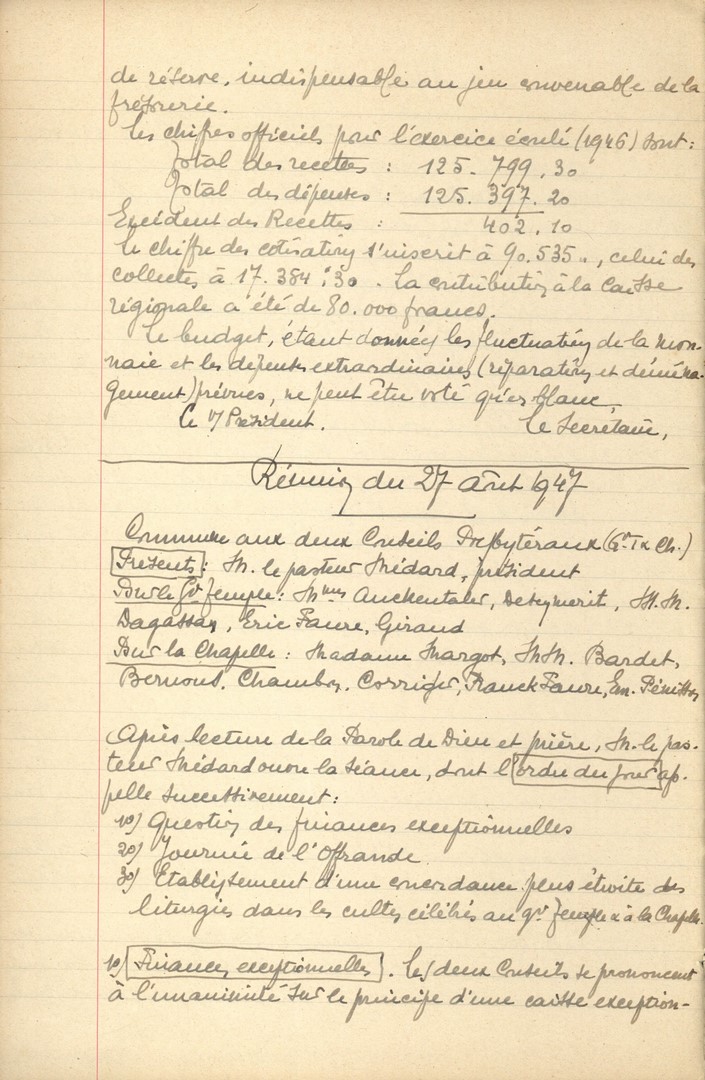 de réserve, indispensable au jeu convenable de la
trésorerie.
Les chiffres officiels pour l'exercice écoulé (1946) sont:
Total des recettes : 125.799,30
Total des dépenses : 125.397.20
Excédent des Recettes : 402,10
Le chiffre des cotisations s'inscrit à 90.535.., celui des
collectes à 17.384:30. La contribution à la Caisse
régionale a été de 80.000 francs.
Le budget, étant données les fluctuations de la mon-
naie et les dépenses extraordinaires (réparations et déména-
gement) prévues, ne peut être voté qu'en blanc.
Le V/Président. Le Secrétaire,
Réunion du 27 Août 1947
Commune aux deux Conseils Presbytéraux (Gd. T. & Ch.)
Présents: M. le pasteur Médard, président
Pour le Gd Temple: Mmes Anckentaler, Deseymerit, M.M.
Dagassan, Eric Faure, Giraud
Pour la Chapelle: Madame Margot, MM. Bardet,
Bernous, Chambon, Corriger, Franck Faure, Em.
Après lecture de la Parole de Dieu et prière, M. le pas-
teur Médard ouvre la séance, dont l'ordre du jour ap-
pelle successivement:
1°) Question des finances exceptionnelles
2°) Journée de l'Offrande
3°) Etablissement d'une concordance plus étroite des
liturgies dans les cultes célébrés au Gd Temple & à la Chapelle.
1°) Finances exceptionnelles. Les deux Conseils se prononcent
à l'unanimité sur le principe d'une caisse exception-